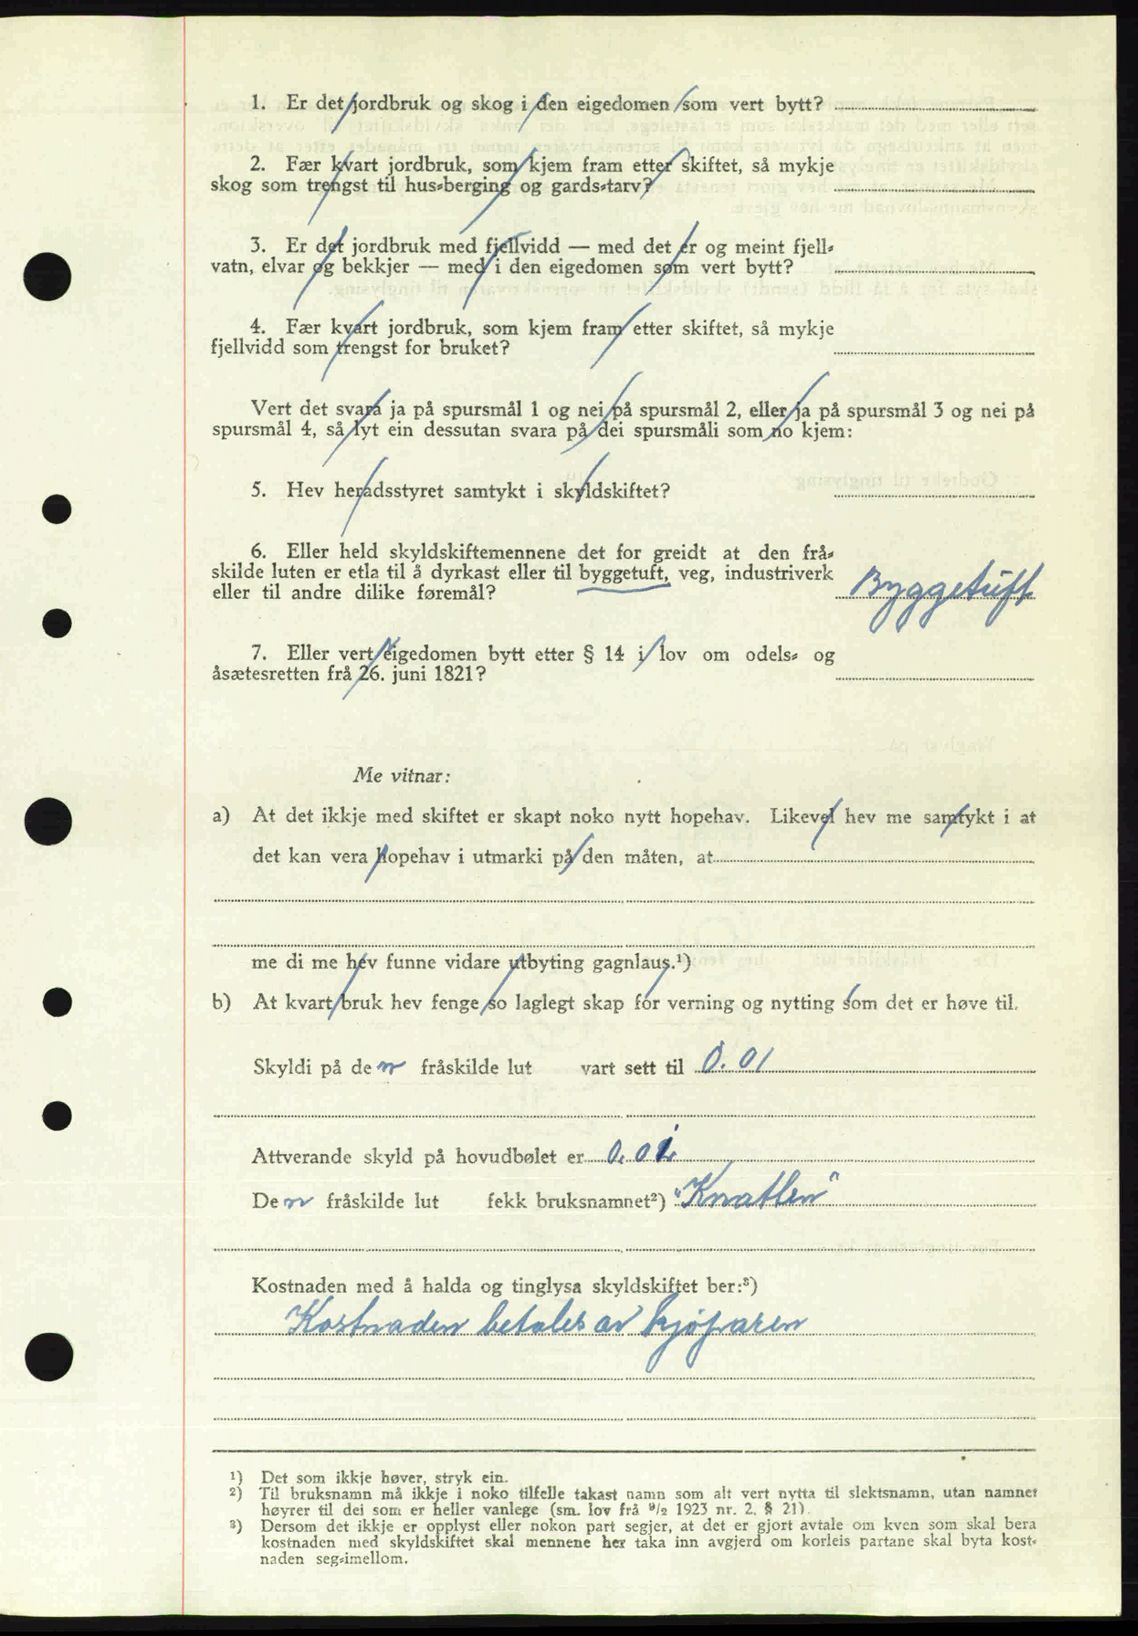 1. Er det jordbruk og skog i den eigedomen som vert bytt?
2. Fær kvart jordbruk, som kjem fram etter skiftet, så mykje
skog som trengst til hus-berging og gards-tarv?
3. Er det jordbruk med fjellvidd — med det er og meint fjell-
vatn, elvar og bekkjer — med i den eigedomen som vert bytt?
4. Fær kvart jordbruk, som kjem fram etter skiftet, så mykje
fjellvidd som trengst for bruket?
Vert det svara ja på spursmål 1 og nei på spursmål 2, eller ja på spursmål 3 og nei på
spursmål 4, så lyt ein dessutan svara på dei spursmåli som no kjem:
5. Hev heradsstyret samtykt i skyldskiftet?
6. Eller held skyldskiftemennene det for greidt at den frå-
skilde luten er etla til å dyrkast eller til byggetuft, veg, industriverk
eller til andre dilike føremål? Byggetuft
7. Eller vert eigedomen bytt etter § 14 i lov om odels- og
åsætesretten frå 26. juni 1821?
Me vitnar:
a) At det ikkje med skiftet er skapt noko nytt hopehav. Likevel hev me samtykt i at
det kan vera hopehav i utmarki på den måten, at
me di me hev funne vidare utbyting gagnlaus.¹)
b) At kvart bruk hev fenge so laglegt skap for verning og nytting som det er høve til.
Skyldi på den fråskilde lut vart sett til 0.01
Attverande skyld på hovudbølet er 0.01
Den fråskilde lut fekk bruksnamnet²) "Knatten"
Kostnaden med å halda og tinglysa skyldskiftet ber:³)
Kostnaden betales av kjøparen
¹) Det som ikkje høver, stryk ein.
²) Til bruksnamn må ikkje i noko tilfelle takast namn som alt vert nytta til slektsnamn, utan namnet
høyrer til dei som er heller vanlege (sm. lov frå 9/2 1923 nr. 2. § 21).
³) Dersom det ikkje er opplyst eller nokon part segjer, at det er gjort avtale om kven som skal bera
kostnaden med skyldskiftet skal mennene her taka inn avgjerd om korleis partane skal byta kost-
naden seg-imellom.